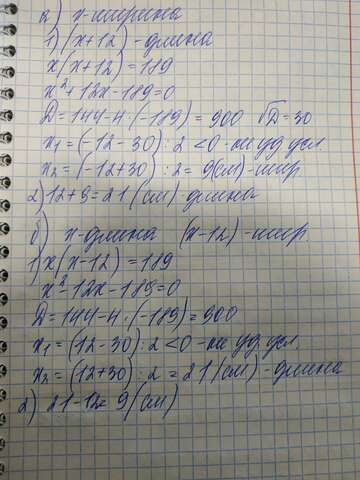 а) x-ширина
1) (x+12) - длина
x(x+12) = 189
x²+12x-189=0
D=144-4·(-189)=900 √D=30
x₁=(-12-30):2<0-не уд усл
x₂=(-12+30):2=9(см)-шир
2) 12+9=21(см)-длина
б) x-длина (x-12)-шир.
1) x(x-12)=189
x²-12x-189=0
D=144-4·(-189)=900
x₁=(12-30):2<0-не уд усл.
x₂=(12+30):2=21(см)-длина
2) 21-12=9(см)